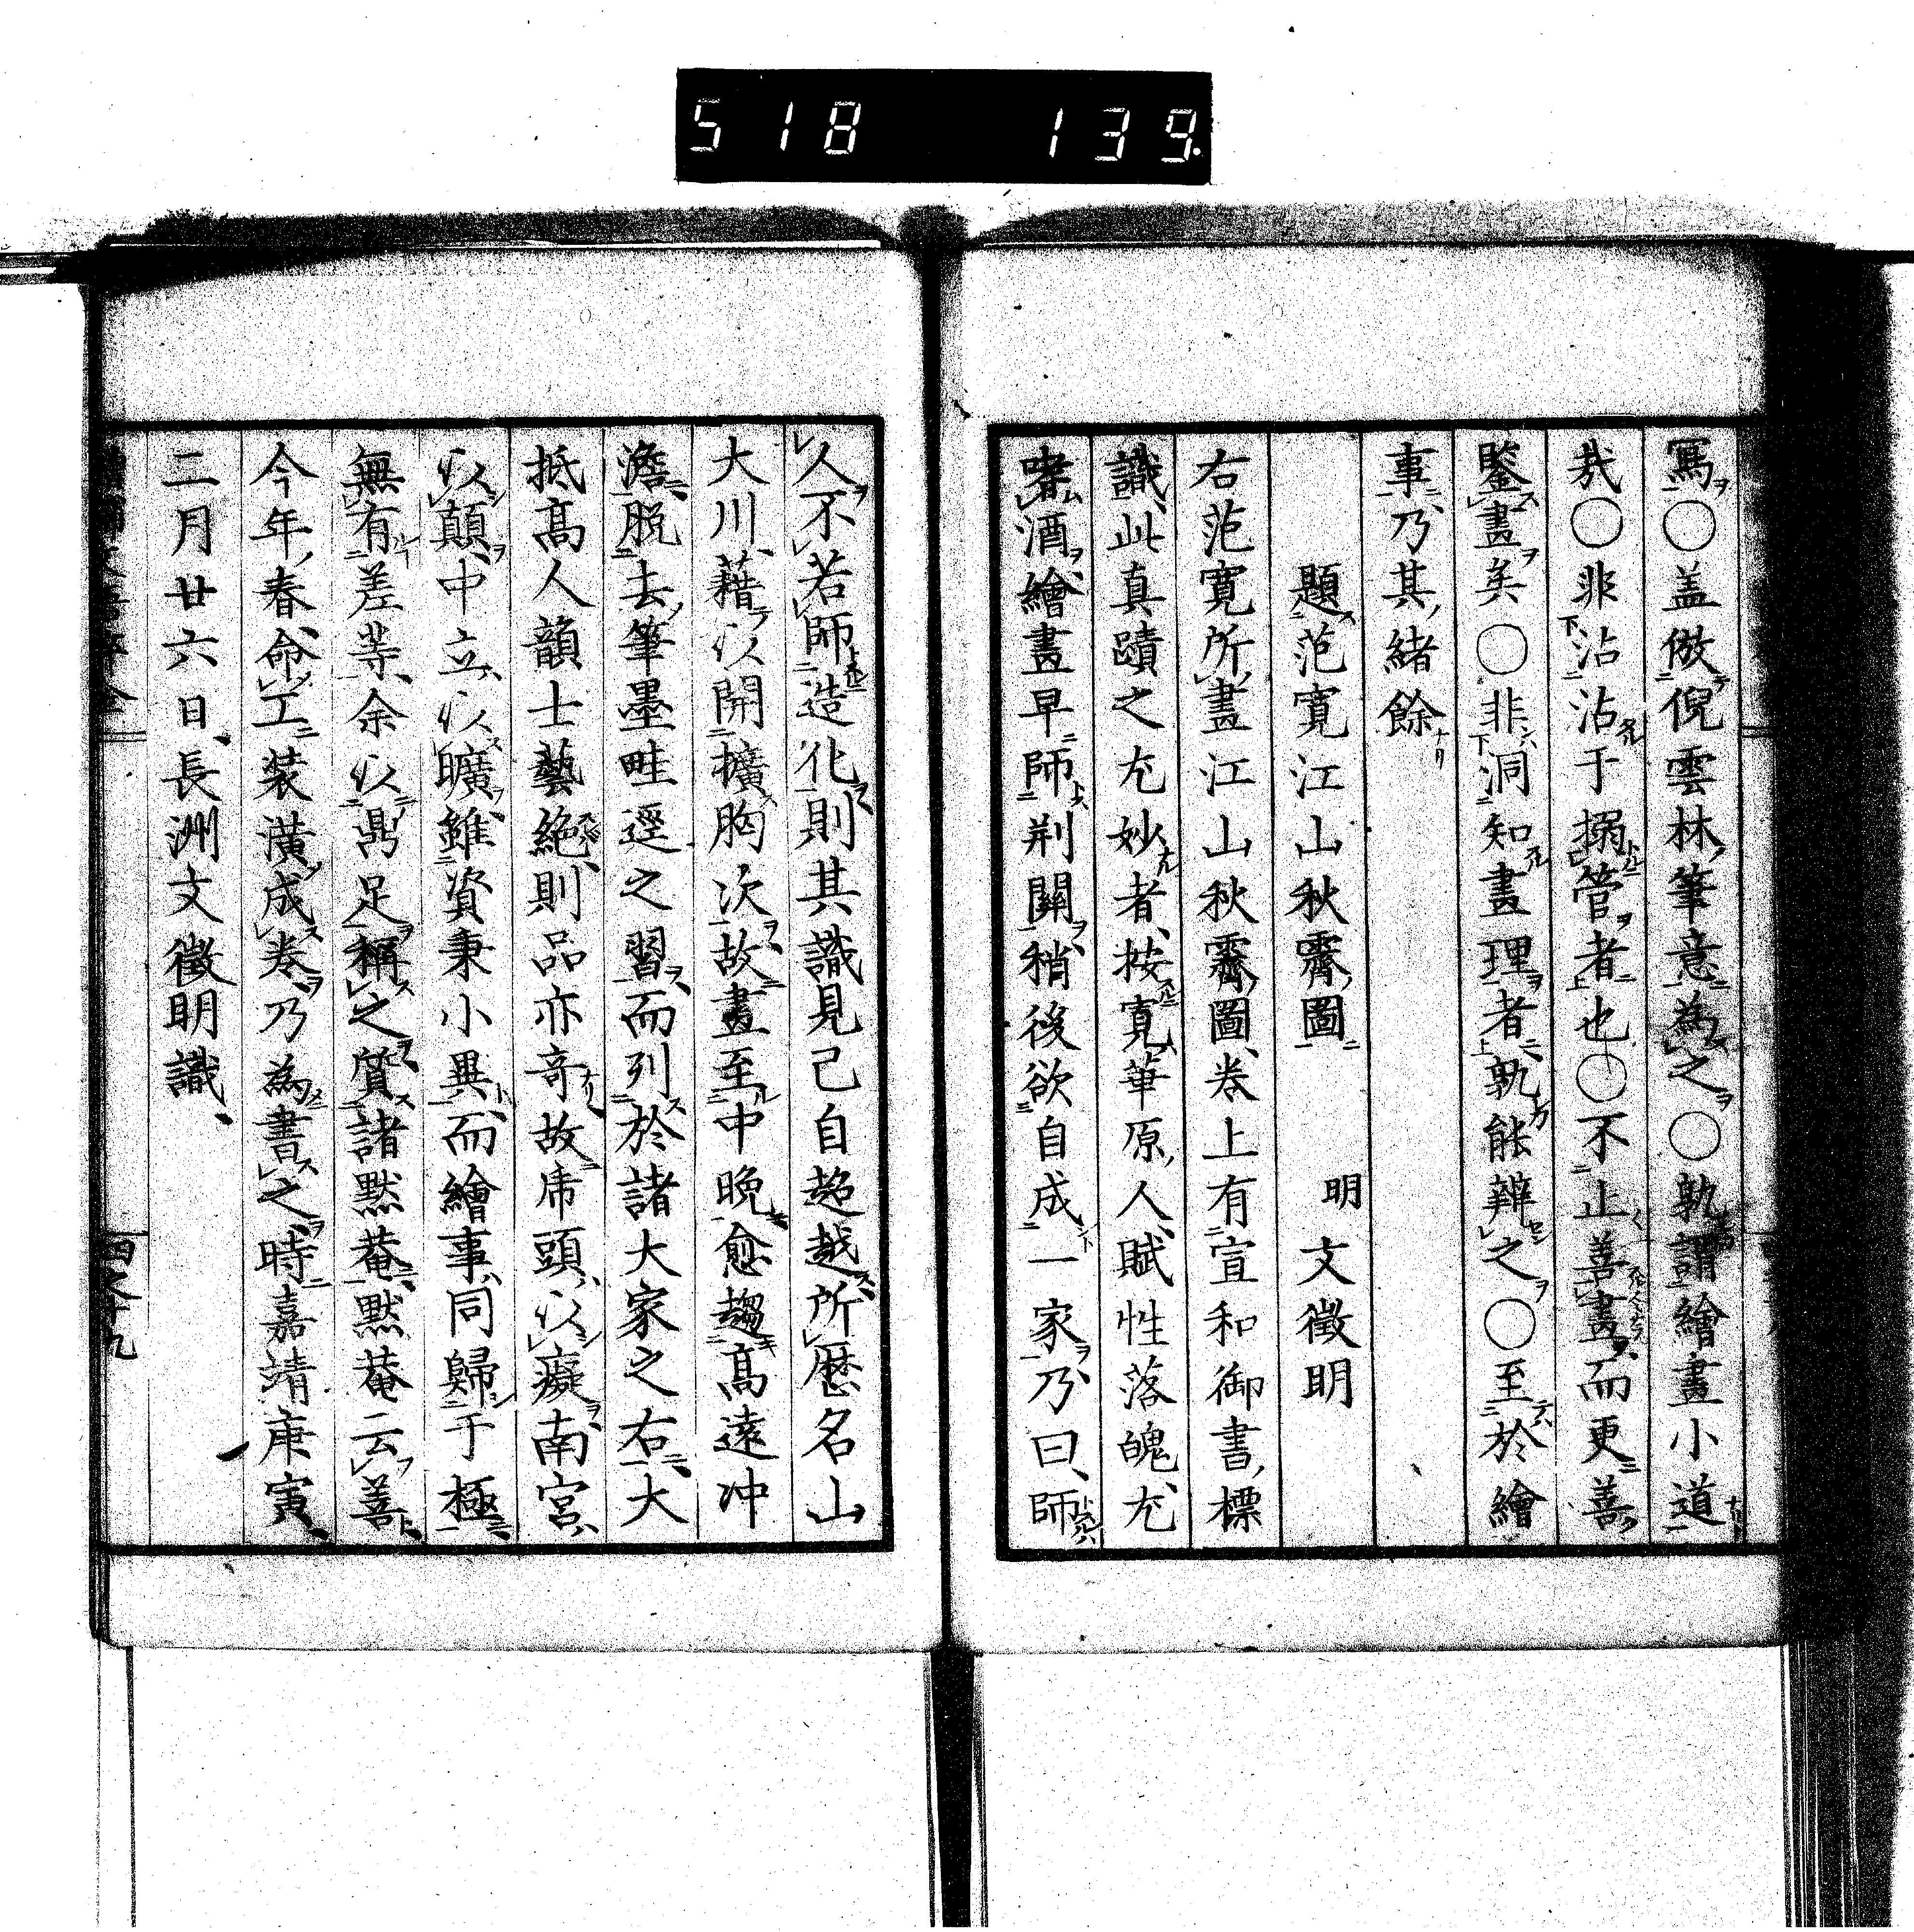 518 139.
寫○盖倣倪雲林筆意為之○孰謂繪畫小道
哉○非沾沾于搦管者也○不止善畫而更善
鑒畫矣○非洞知畫理者孰能辨之○至於繪
事乃其緒餘
題范寛江山秋霽圖 明 文徵明
右范寛所畫江山秋霽圖卷上有宣和御書標
識此真蹟之尤妙者按寛華原人賦性落魄尤
嗜酒繪畫早師荆關稍後欲自成一家乃曰師
人不若師造化則其識見已自超越所歷名山
大川藉以開擴胸次故畫至中晚愈趨高遠冲
澹脱去筆墨畦逕之習而列於諸大家之右大
抵高人韻士藝絶則品亦奇故席頭以癡南宮
以顛中立以曠雖資秉小異而繪事同歸于極
無有差等余以鼎足稱之質諸默菴默菴云善
今年春命工装潢成卷乃為書之時嘉靖庚寅
二月廿六日長洲文徵明識